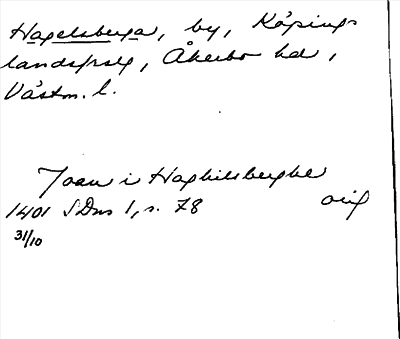 Hagelsberga, by, Köpings
landsförs, Åkerbo hd,
Västm. l.
Joan i Haghilsberghe
1401 SDns 1, s. 78 orig
31/10